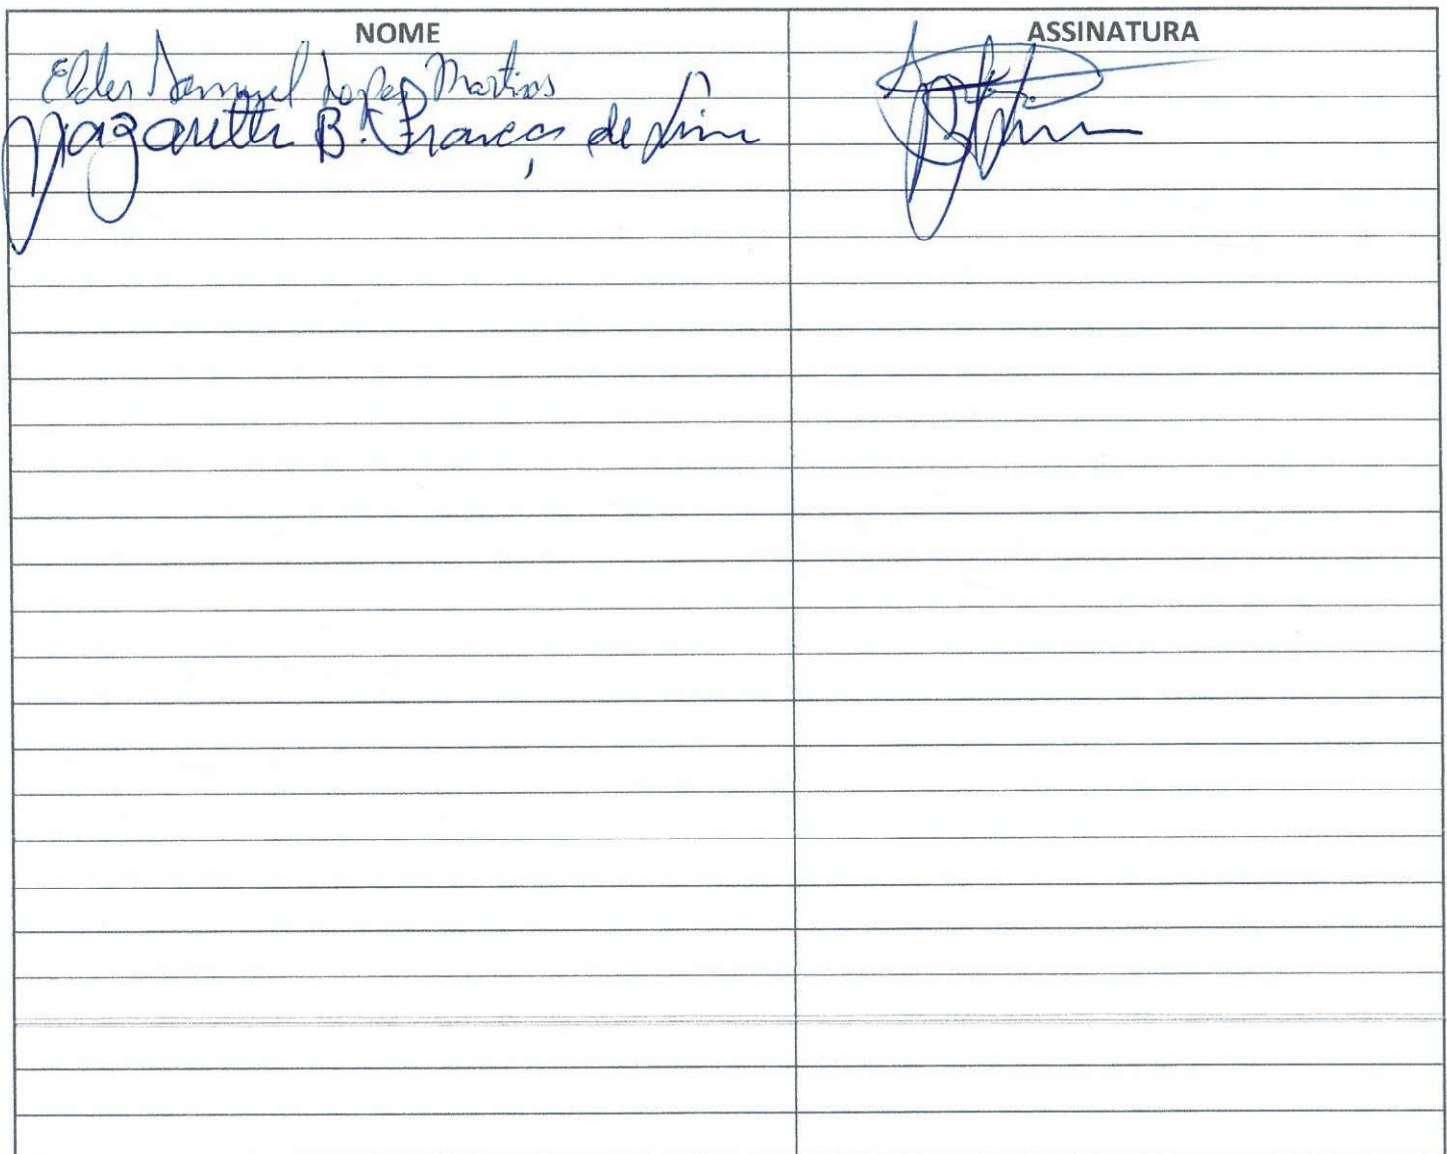 NOME ASSINATURA
Elder Samuel Lopes Martins
Nazareth B. França de Lima